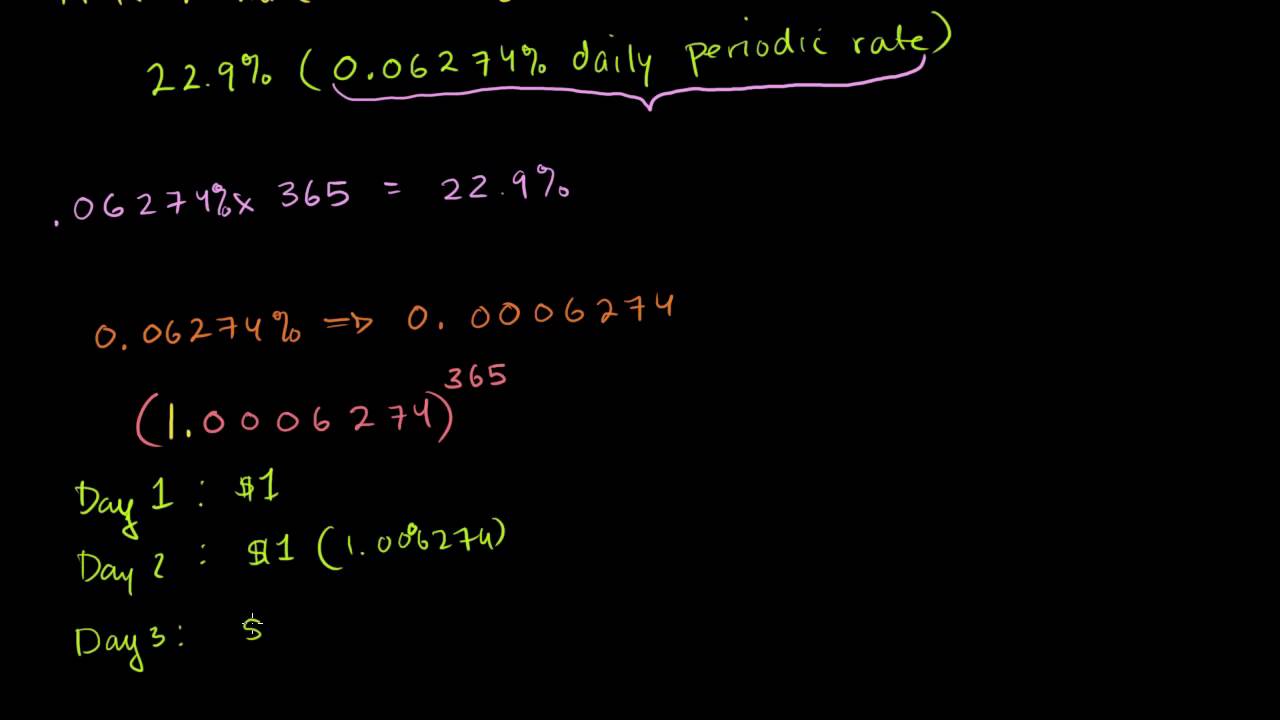 22.9% (0.06274% daily periodic rate)
.06274% x 365 = 22.9%
0.06274% => 0.0006274
(1.0006274)^365
Day 1 : $1
Day 2 : $1 (1.0006274)
Day 3 : $